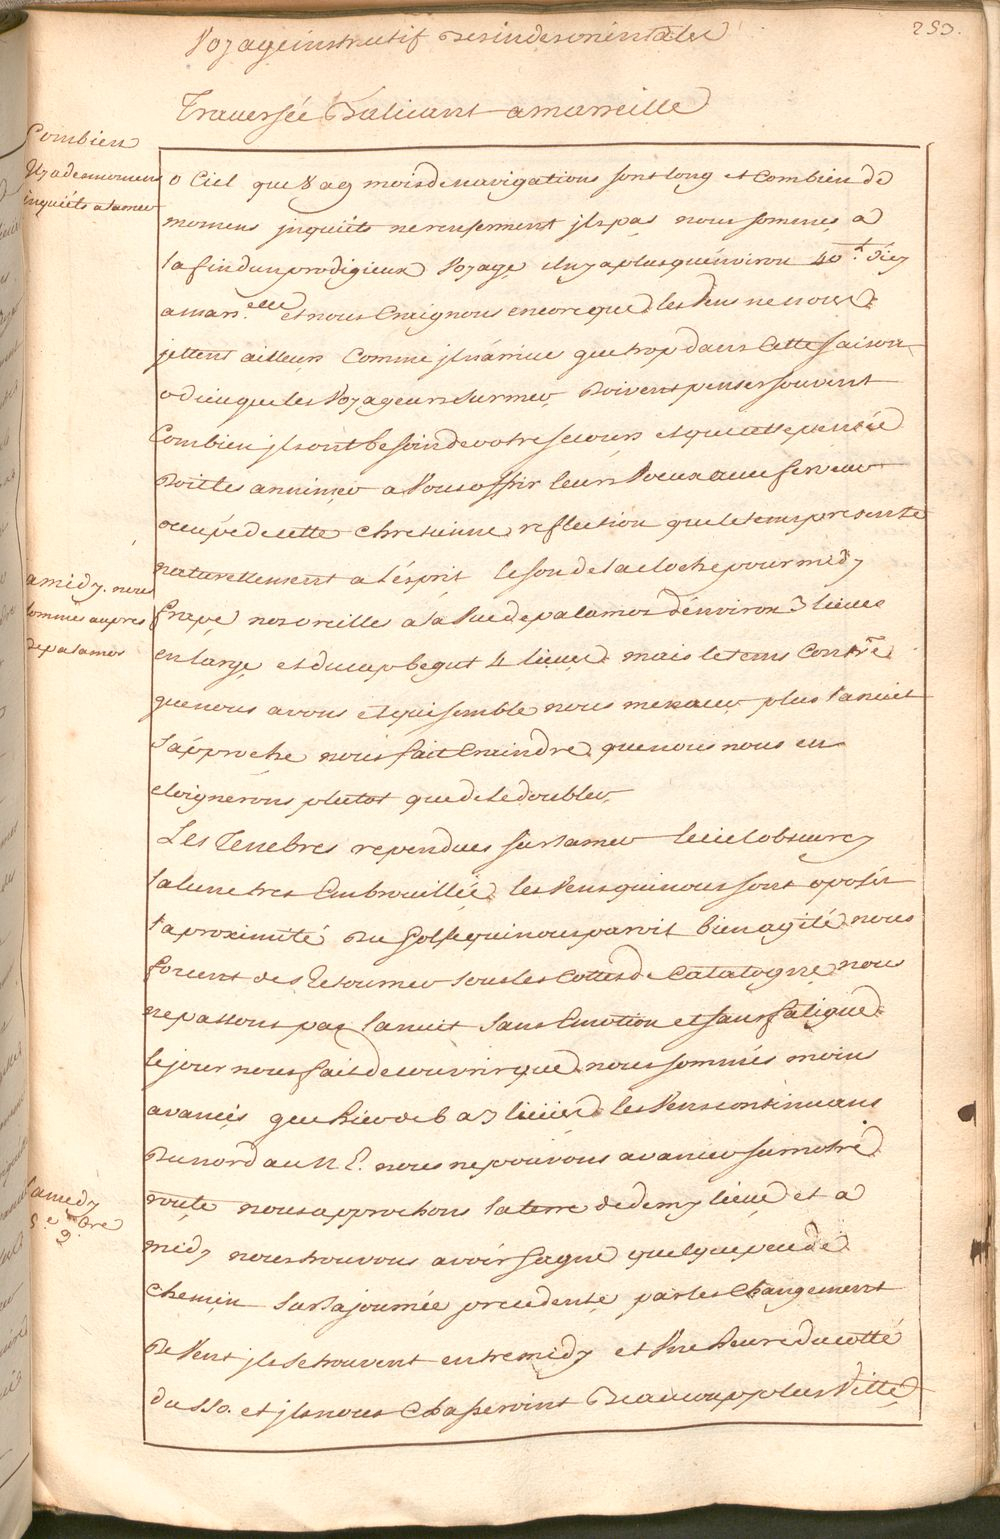 253.
Voyage instructif des indes orientales
Traversée D'alicant a marseille
Combien
Il y a de momens
inquiéts a la mer
o Ciel que 8 a 9 mois de navigations sont long et Combien de
momens jnquiéts ne renferment jls pas nous sommes a
la fin d'un prodigieux Voyage il n'y a plus qu'énviron 40 t. d'icy
a mars.elle et nous Craignons encore que les Vens ne nous
jettent ailleurs Comme jl n'árrive que trop dans Cette saison
o dieu que les Voyageurs sur mer doivent penser souvent
Combien jls ont besoin de votre secours et que cette pensée
doit les annimer a Vous offrir leurs Voeux avec ferveur
occupé de cette chretienne reflection que le tems presente
naturellement a l'ésprit le son de la cloche pour midy
a midy. nous
sommes aupres
de palamos
frape nos oreilles a la Vue de palamos d'énviron 3 lieues
en large et du cap begut 4 lieues mais le tems Contre
que nous avons et qui semble nous menacer plus la nuit
s'ápproche nous fait Craindre que nous nous en
eloignerons plutot que de le doubler.
Les Tenebres rependues sur la mer le ciel obscurcy
la lune tres Embrouillée les Vens qui nous sont oposés
l'aproximité du Golfe qui nous paroit bien agité nous
forcent de Retourner sous les Cottes de Catalogne nous
ne passons pas la nuit sans Emotion et sans fatigue
le jour nous fait decouvrir que nous sommes moins
avancés que hier de 6 a 7 lieües les Vens continuans
Du nord au N E. nous ne pouvons avancer sur notre
Samedy
8.e mbre
9
route nous approchons la terre de demy lieue et a
midy nous trouvons avoir gagné quelque peu de
chemin sur la journée precedente par les changement
de Vent jls se trouvent entre midy et Une heure du cotté
du sso. et jls nous chasseroint Beaucoup plus Ville